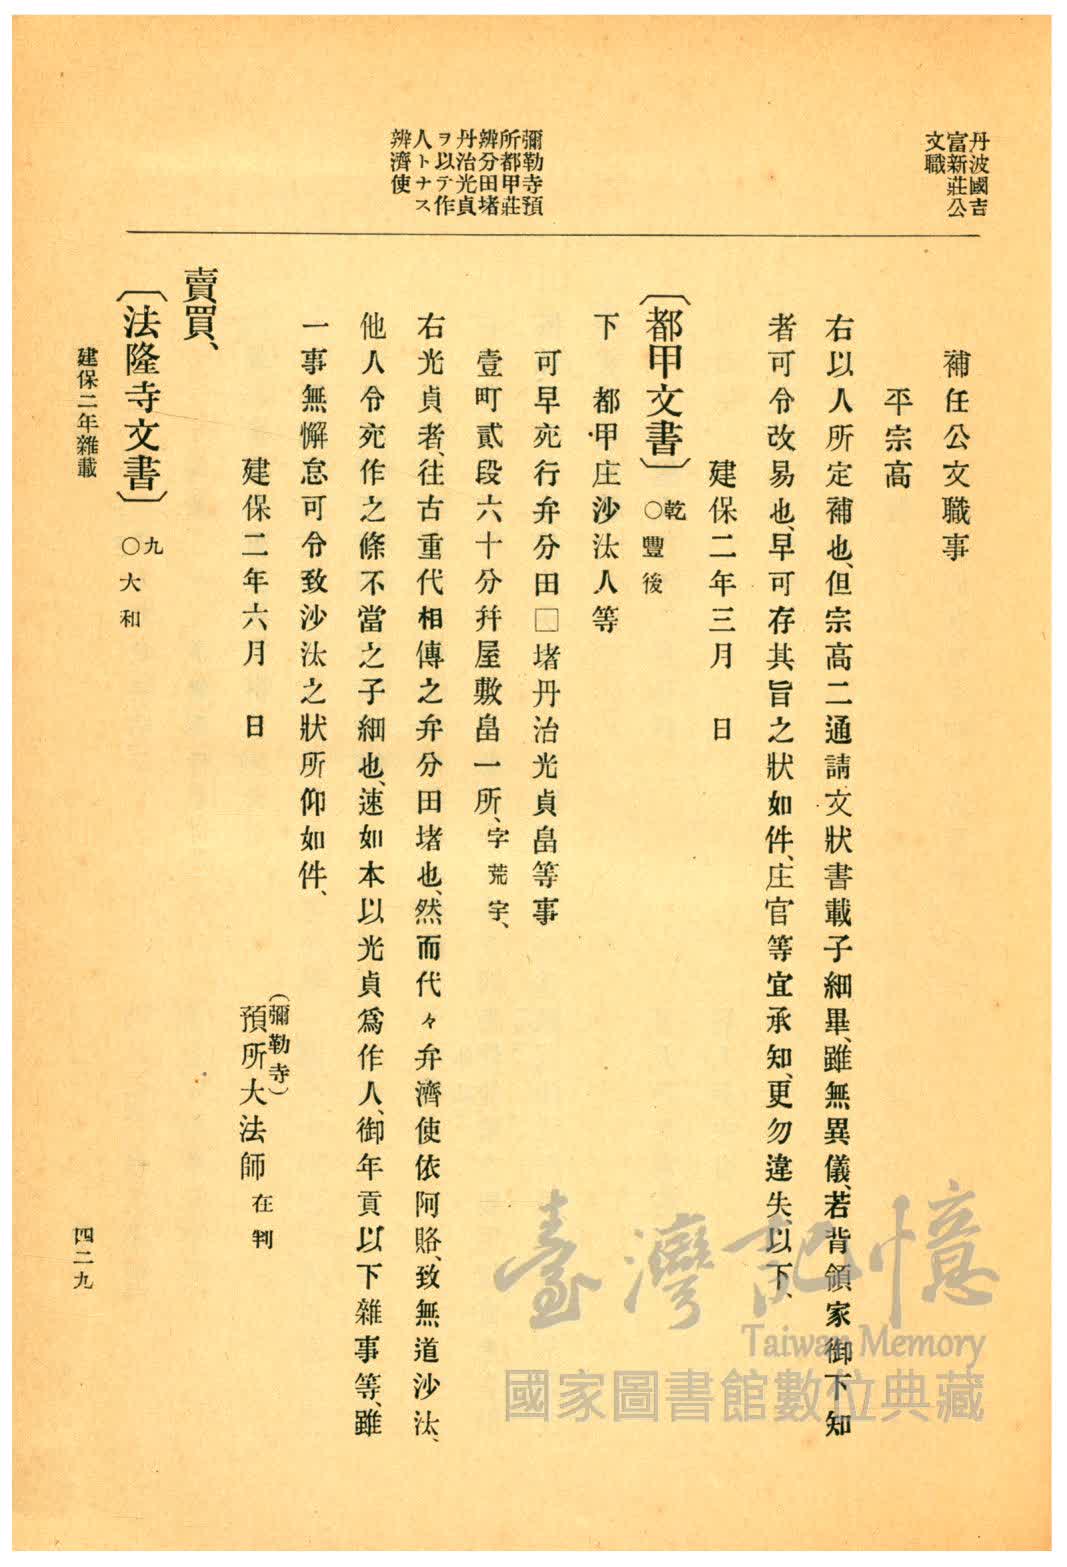 丹波國吉
富新莊公
文職
彌勒寺預
所都甲莊
辨分田堵
丹治光貞
ヲ以テ作
人トナス
辨濟使
補任公文職事
平宗高
右以人所定補也、但宗高二通請文狀書載子細畢、雖無異儀、若背領家御下知
者可令改易也、早可存其旨之狀如件、庄官等宜承知、更勿違失、以下、
建保二年三月　日
〔都甲文書〕 乾 ○豐後
下　都甲庄沙汰人等
可早宛行弁分田□堵丹治光貞畠等事
壹町貳段六十分幷屋敷畠一所、字荒宇、
右光貞者、往古重代相傳之弁分田堵也、然而代々弁濟使依阿賂、致無道沙汰、
他人令宛作之條不當之子細也、速如本以光貞爲作人、御年貢以下雜事等、雖
一事無懈怠可令致沙汰之狀所仰如件、
建保二年六月　日
（彌勒寺）
預所大法師 在判
賣買、
〔法隆寺文書〕 九 ○大和
建保二年雜載
四二九
臺灣記憶
Taiwan Memory
國家圖書館數位典藏